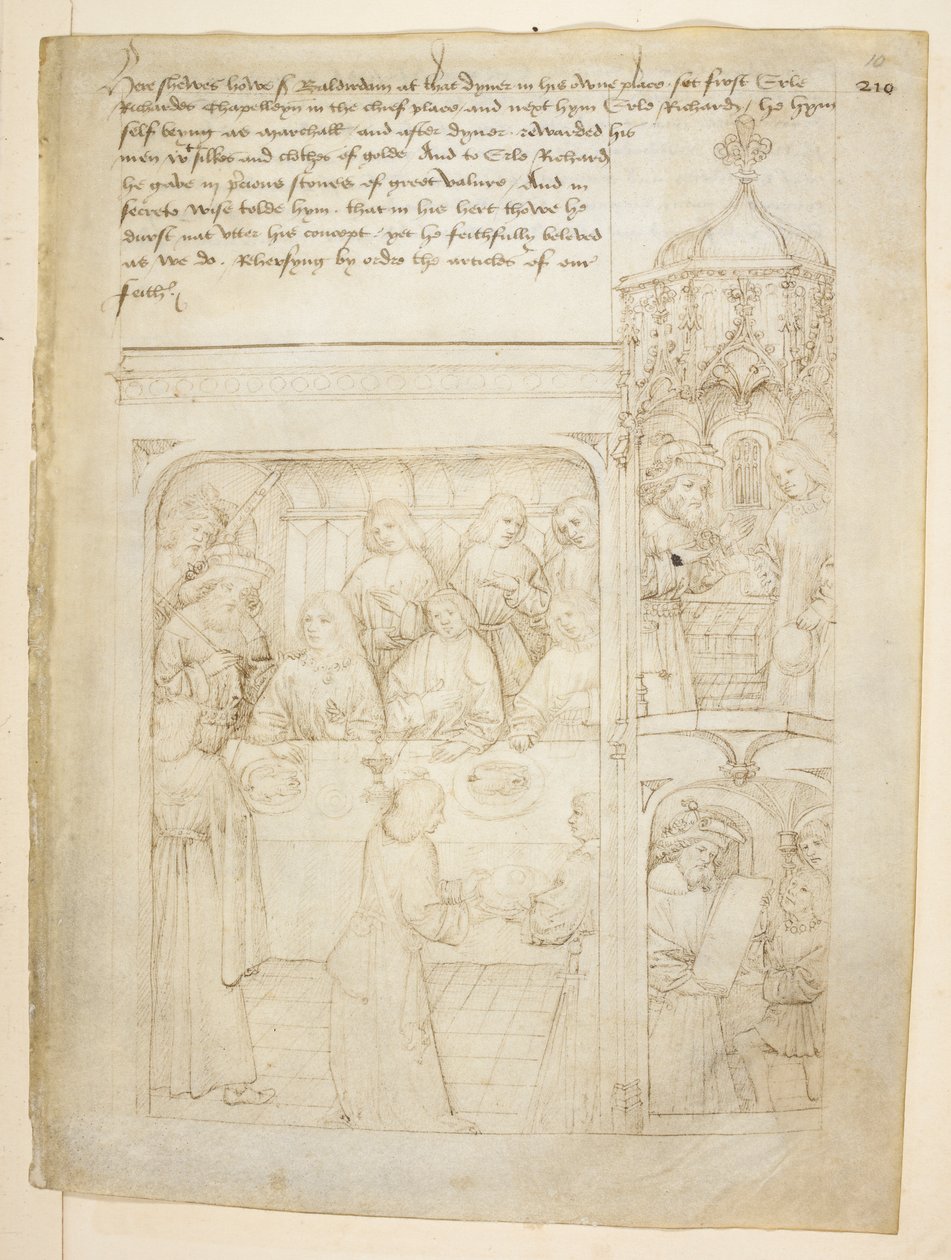 10
Here shewes howe sr Baldirdam at that dyner in his owne place . set first Erle 210
Richardes Chapelleyn in the chief place / and next hym Erle Richard / he hym
self beyng as marchall / and after dyner . rewarded his
men wt silkes and clothes of golde And to Erle Richard
he gave in p̄cious stones of greet valure / And in
secrete wise tolde hym . that in his hert thowe he
durst nat vtter his concept / yet he feithfully beleved
as we do . Rehersyng by ordre the articles of our
feith .